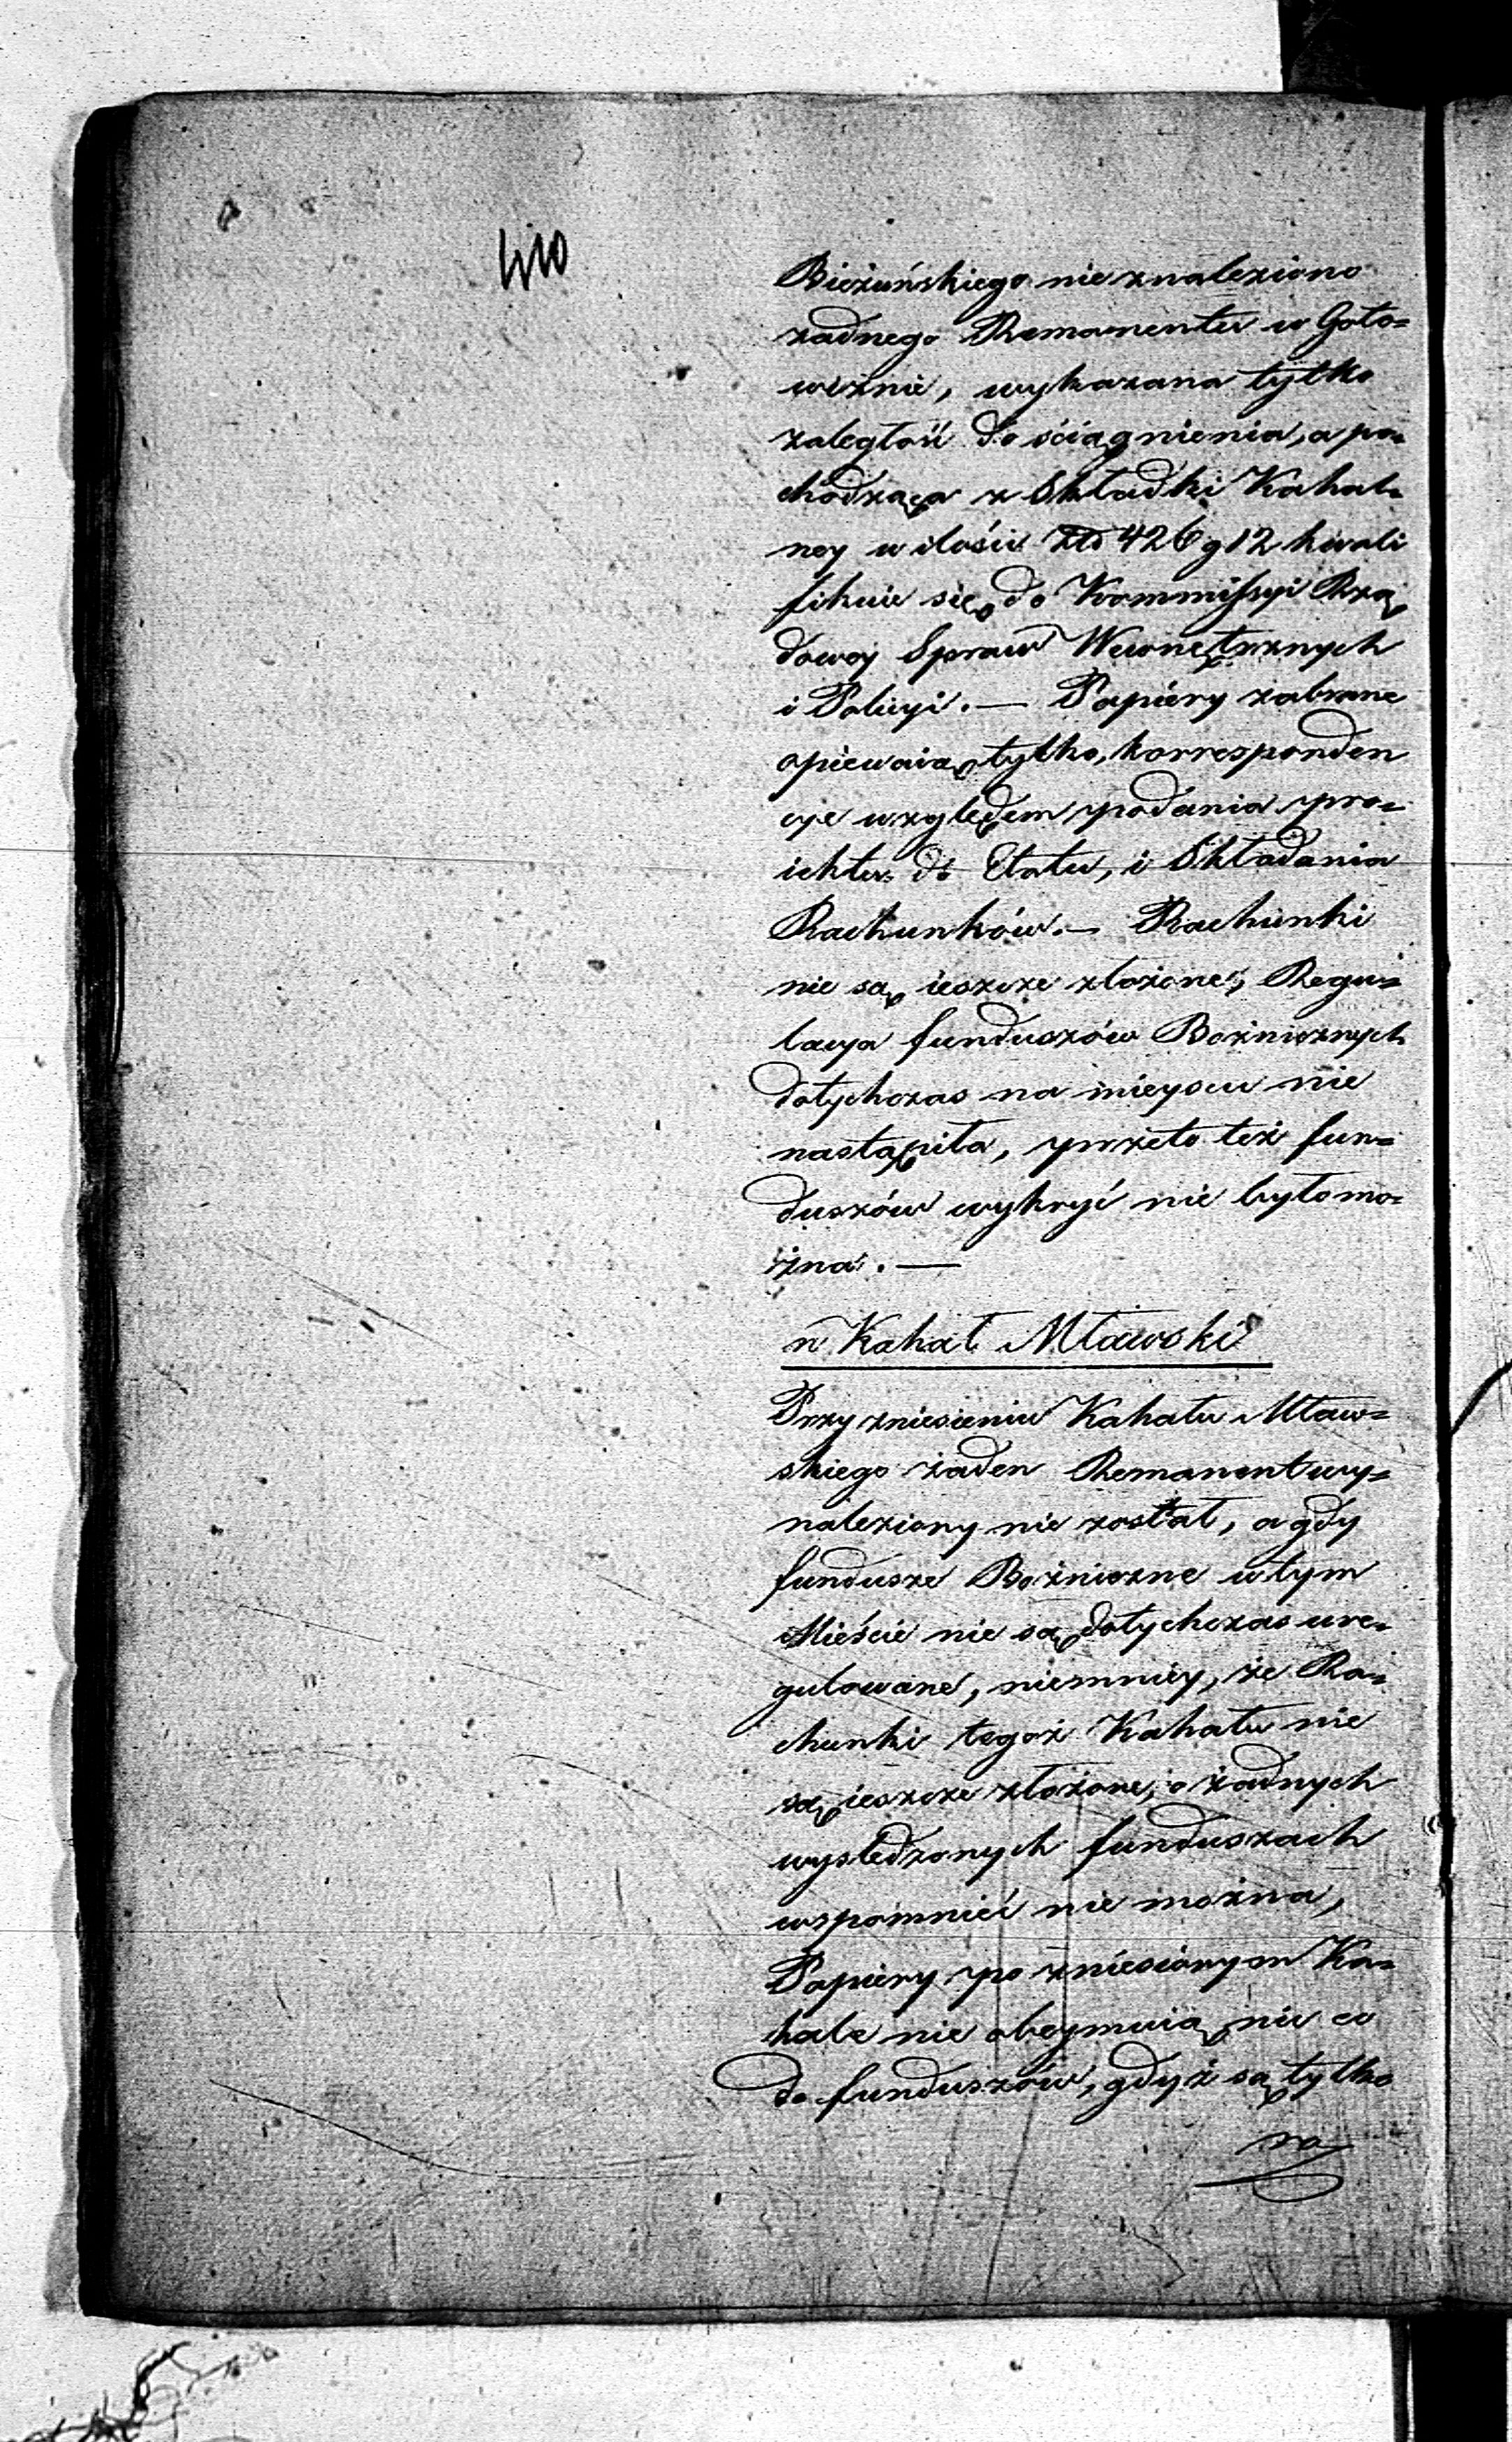 410
Bieżuńskiego nie znaleziono
żadnego Remanentu w Goto=
wiźnie, wykazana tylko
zaległość do ściągnienia, a po=
chodząca z Składki Kahal=
ney w ilości złd 426 g 12 kwali
fikuie się do Kommissyi Rzą
dowey Spraw Wewnętrznych
i Policyi. — Papiéry zabrane
opiewaią tylko, korresponden
cye względem podania pro=
iektu do Etatu, i Składania
Rachunków. — Rachunki
nie są ieszcze złożone, Regu=
lacya funduszów Bożniczych
dotychczas na mieyscu nie
nastąpiła, przeto też fun=
duszów wykryć nie było mo=
żna. —
n Kahał Mławski
Przy zniesieniu Kahału Mław=
skiego żaden Remanent wy=
naleziony nie został, a gdy
fundusze Bożniczne w tym
Mieście nie są dotychczas ure=
gulowane, niemniéy, że Ra=
chunki tegoż Kahału nie
są ieszcze złożone, o żadnych
wyśledzonych funduszach
wspomnieć nie można,
Papiery po zniesionym Ka=
hale nie obeymuią nic co
do funduszów, gdyż są tylko